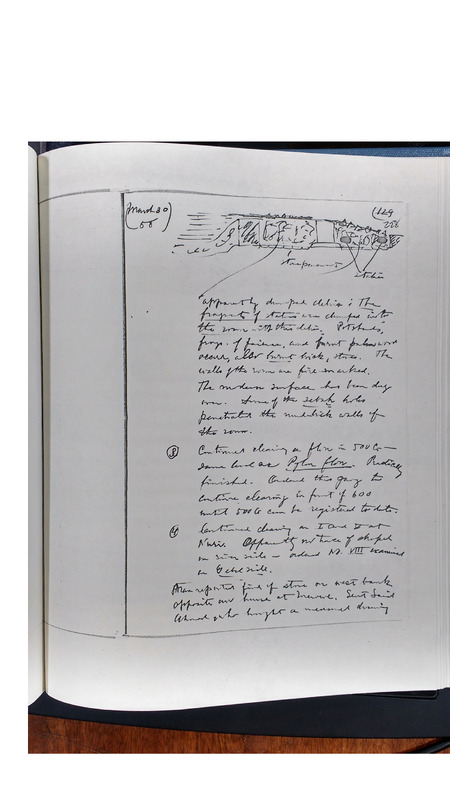 (March 30)
(129
256
stumps
statue
apparently dumped debris. The
fragments of statue were dumped into
the room with this debris. Potsherds,
frags. of faience, and burnt palm wood
occurs, also burnt brick, stone. The
walls of the room are fire-marked.
The modern surface has been dug
over. Some of the sebakh holes
penetrated the mudbrick walls of
the room.
(3) Continued clearing on floor in 500 G –
same level as Pylon floor. Practically
finished. Ordered this gang to
continue clearing in front of 600
until 500 G can be registered to date.
(4) Continued clearing on I and II at
Nuri. Apparently no trace of chapel
on river side – ordered No. VIII examined
on Gebel side.
Man reported find of stone on west bank
opposite our house at Merawi. Sent Said
Ahmed who brought a measured drawing